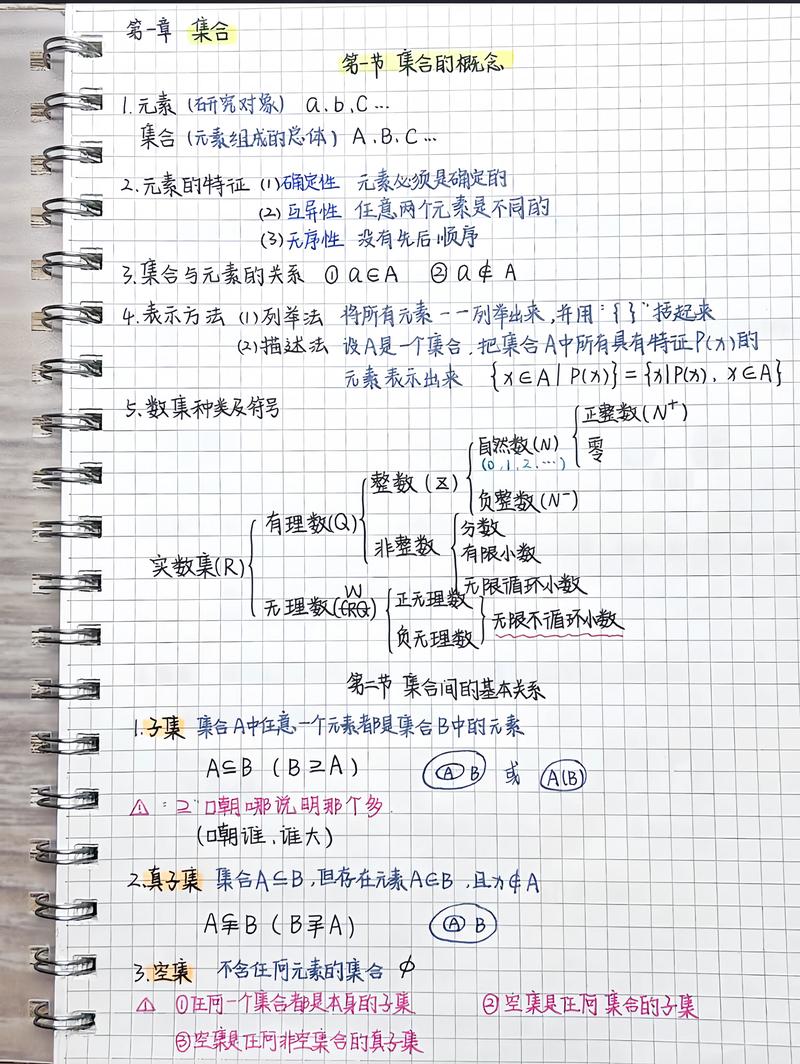 第一章 集合
第一节 集合的概念
1.元素(研究对象) a.b.C…
集合(元素组成的总体) A.B.C…
2.元素的特征 (1)确定性 元素必须是确定的
(2)互异性 任意两个元素是不同的
(3)无序性 没有先后顺序
3.集合与元素的关系 ①a∈A ②a∉A
4.表示方法 (1)列举法 将所有元素一一列举出来,并用"{ }"括起来
(2)描述法 设A是一个集合,把集合A中所有具有特征P(x)的
元素表示出来 {x∈A|P(x)}={x|P(x),x∈A}
5.数集种类及符号
正整数(N⁺)
自然数(N)
(0,1,2,…)
零
整数(Z)
负整数(N⁻)
有理数(Q)
分数
非整数
有限小数
实数集(R)
无限循环小数
W
无理数(CRQ)
正无理数
无限不循环小数
负无理数
第二节 集合间的基本关系
1.子集 集合A中任意一个元素都是集合B中的元素
A⊆B (B⊇A) A B 或 A(B)
⚠ :"⊇"口朝哪说明那个多.
(口朝谁,谁大)
2.真子集 集合A⊆B,但存在元素A∈B,且x∉A
A⫋B (B⫌A) A B
3.空集 不含任何元素的集合 ∅
⚠ ①任何一个集合都是本身的子集 ②空集是任何集合的子集
③空集是任何非空集合的真子集